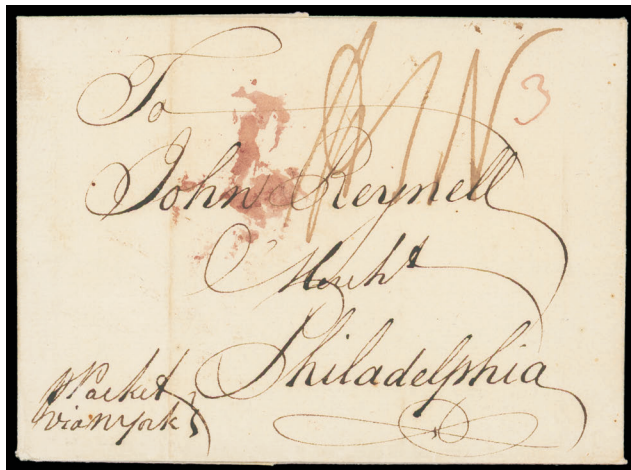 To
3
John Reynell
Mercht
Philadelphia
p Packet
via N York